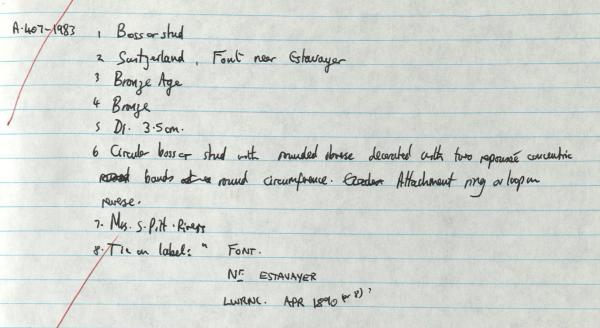 A.407-1983 1 Boss or stud
2 Switzerland, Font near Estavayer
3 Bronze Age
4 Bronze
5 Di. 3.5cm.
6 Circular boss or stud with rounded obverse decorated with two repoussé concentric
bands round circumference. Attachment ring or loop on
reverse.
7. Mrs. S. Pitt-Rivers
8. Tie on label: "FONT.
Nr ESTAVAYER
APR 1890 (or 8)?